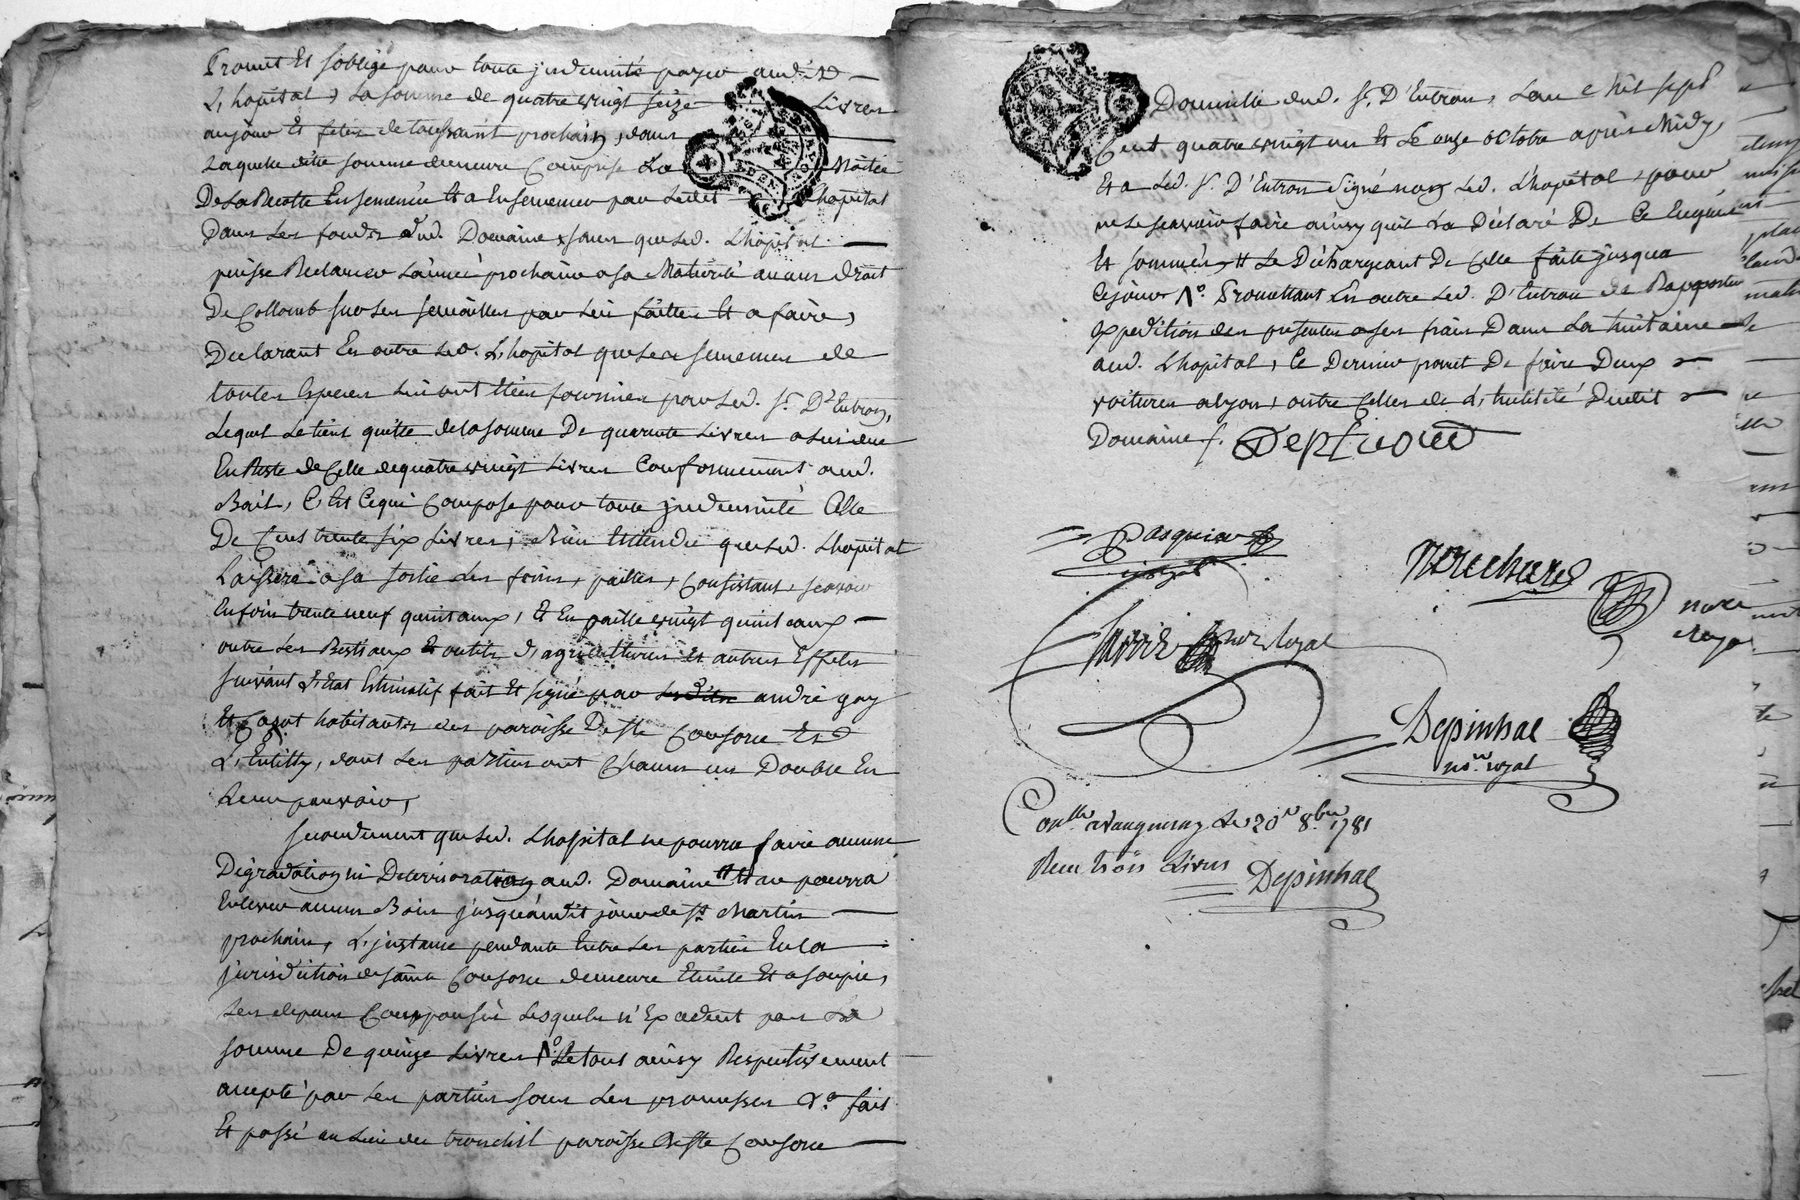 Promet Et soblige pour toute indemnité payer aud. Sr
L'hopital, La somme de quatre vingt seize Livres
aujour Et feste de toussaint prochain, dans
Laquelle ditte somme demeure Comprise La Moitié
De La Recolte Ensemencée Et a Ensemencer par Ledit Lhopital
Dans Les fonds dud. Domaine, sans que Led. Lhopital
puisse Reclamer L'année prochaine a sa Maturité aucun droit
De Collomb sur Les semailles par Lui faittes Et a faire,
Declarant En outre Led. L'hopital que Les semences de
toutes Especes Lui ont Eté fournies par Led. Sr. D'Entron,
Lequel Le tient quitte de la somme De quarante Livres a Lui due
En Reste de Celle de quatre vingt Livres Conformement aud.
Bail, C'Est Ce qui Compose pour toute indemnité Celle
De Cent trente six Livres, Bien Entendu que Led. Lhopital
Laissera a sa sortie des foins, pailles, Consistant, scavoir
En foin trente neuf quintaux, Et En paille vingt quintaux
outre Les Bestiaux Et outils d'agricultures Et autres Effets
suivant L'Etat Estimatif fait Et signé par andré gay
Et habitants des paroisse De Ste Consorce Et
L'Entilly, dont Les parties ont Chacun un Double En
Leur pouvoir,
secondement que Led. Lhopital ne pourra faire aucune
Dégradation ni Deterioration aud. Domaine Et ne pourra
Enlever aucun Bois jusqu'audit jour de St Martin
prochain, L'instance pendante Entre Les parties En La
jurisdiction de sainte Consorce demeure Eteinte Et asoupie,
Les depens Compensés Lesquels n'Excedent pas La
somme De quinze Livres Le tout ainsy Respectivement
accepté par Les parties sous Les promesses &a fait
Et passé au Lieu du tronchil paroisse De Ste Consorce
Domicille dud. Sr. D'Entron, L'an Mil sept
Cent quatre vingt un Et Le onze octobre après Midy,
Et a Led. Sr. D'Entron signé non Led. Lhopital, pour
ne Le scavoir faire ainsy qu'il L'a Déclaré De Ce Enquis
Et sommés, Et Le Déchargeant De Celle faite jusqua
Cejour Promettant En outre Led. D'Entron de Rapporter
Expedition des presentes a ses frais Dans La huitaine
aud. Lhopital, Ce Dernier promet De faire Deux
voitures a Lyon, outre Celles de L'hutilité Dudit
Domaine
Pasquier
royal
no.re royal
nore
royal
Depinhac
no.re royal
Con.lle a Vaugneray Le 20e 8bre 1781
Recu trois Livres
Depinhac